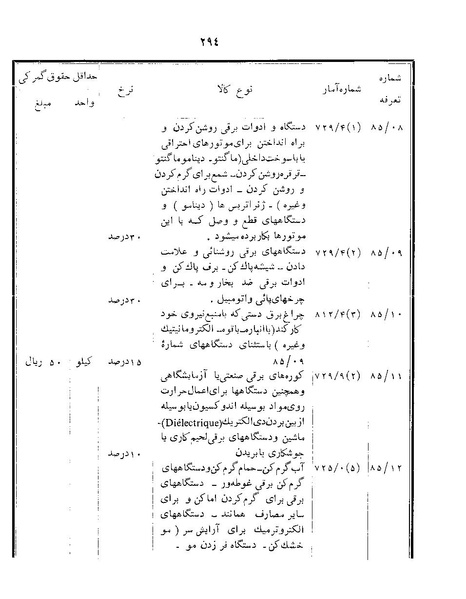 ۲۹۴
شماره تعرفه شماره آمار نوع کالا نرخ حداقل حقوق گمرکی واحد مبلغ
۸۵/۰۸ ۷۲۹/۴(۱) دستگاه و ادوات برقی روشن کردن و
براه انداختن برای موتورهای احتراقی
یا با سوخت داخلی (ماگنتو ـ دینامو ماگنتو
ـ قرقره روشن کردن ـ شمع برای گرم کردن
و روشن کردن ـ ادوات راه انداختن
وغیره) ـ ژنراتریس ها (دینامو) و
دستگاههای قطع و وصل که با این
موتورها بکار برده میشود . ۳۰ درصد
۸۵/۰۹ ۷۲۹/۴(۲) دستگاههای برقی روشنائی و علامت
دادن ـ شیشه پاک کن ـ برف پاک کن و
ادوات برقی ضد بخار و مه ـ برای
چرخهای پائی و اتومبیل . ۳۰ درصد
۸۵/۱۰ ۸۱۲/۴(۳) چراغ برق دستی که با منبع نیروی خود
کار کند (با انباره ـ با قوه ـ الکترومانیتیک
وغیره) باستثنای دستگاههای شمارهٔ
۸۵/۰۹ ۱۵ درصد کیلو ۵۰ ریال
۸۵/۱۱ ۷۲۹/۹(۲) کوره‌های برقی صنعتی یا آزمایشگاهی
وهمچنین دستگاهها برای اعمال حرارت
روی مواد بوسیله اندوکسیون یا بوسیله
از بین بردن دی الکتریک (Diélectrique) ـ
ماشین و دستگاههای برقی لحیم کاری یا
جوشکاری یا بریدن ۱۰ درصد
۸۵/۱۲ ۷۲۵/۰(۵) آب گرم کن ـ حمام گرم کن و دستگاههای
گرم کن برقی غوطه‌ور ـ دستگاههای
برقی برای گرم کردن اماکن و برای
سایر مصارف همانند ـ دستگاههای
الکتروترمیک برای آرایش سر (مو
خشک کن ـ دستگاه فر زدن مو ـ